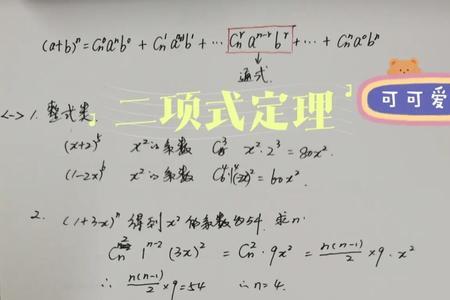 (a+b)ⁿ=Cₙ⁰aⁿb⁰ + Cₙ¹aⁿ⁻¹b¹ +⋯ Cₙʳaⁿ⁻ʳbʳ +⋯+ Cₙⁿa⁰bⁿ
通式
二项式定理
可可爱
<一> 1. 整式类
(x+2)⁵ x²的系数 C₅³ x²·2³=80x².
(1-2x)⁶ x²的系数 C₆⁴1⁴(-2x)²=60x².
2. (1+3x)ⁿ 得到x²的系数为54. 求n.
Cₙ² 1ⁿ⁻²(3x)² = Cₙ²·9x² = n(n-1)/2 ×9·x²
∴ n(n-1)/2 ×9=54 ∴n=4.